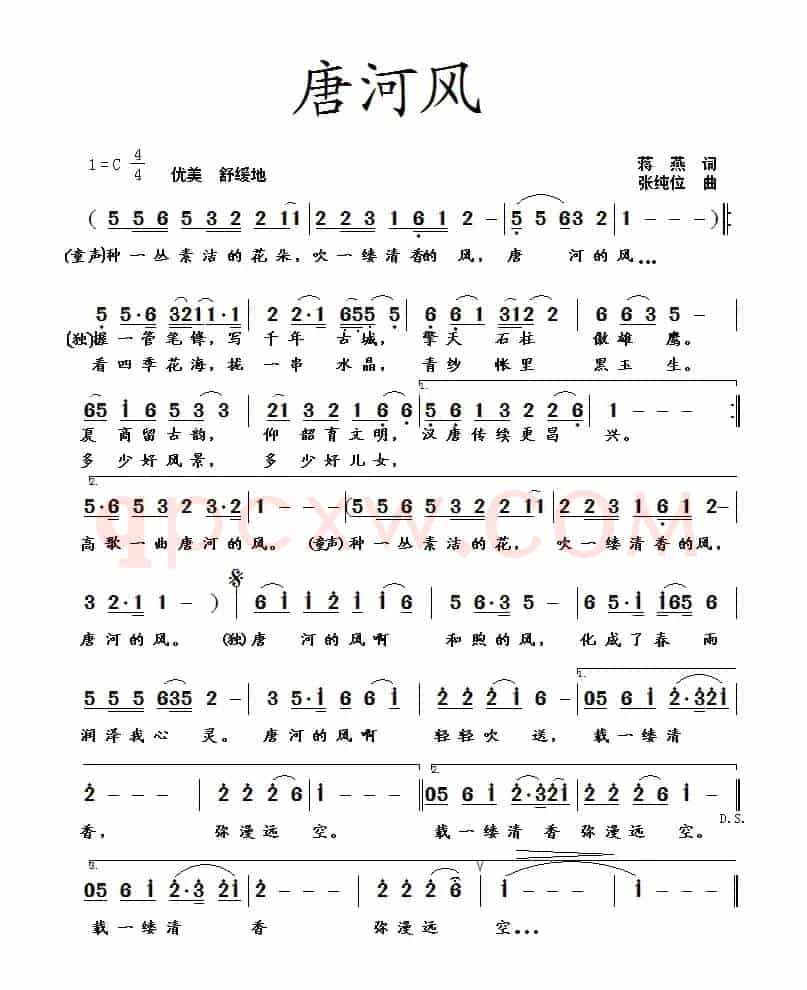 唐河风
1=C 4/4 优美 舒缓地
蒋 燕 词
张纯位 曲
( 5 5 6 5 3 2 2 1 1 | 2 2 3 1 6 1 2 - | 5 5 6 3 2 | 1 - - ) :
(童声)种一丛素洁的花朵,吹一缕清香的风, 唐 河的风...
5 5·6 3211·1 | 2 2·1 6555 | 6 6 1 3112 | 6 6 3 5 - |
(独)握一管笔锋,写 千年 古城, 擎天 石柱 傲雄 鹰。
看四季花海,拢 一串 水晶, 青纱 帐里 黑玉 生。
1.
65 i 6 5 3 3 | 21 3 2 1 6 6 | 5 6 1 3 2 2 2 6 | 1 - - - :
夏 商留古韵, 仰 韶育文明, 汉唐传续更昌 兴。
多 少好风景, 多 少好儿女,
2.
5·6 5 3 2 3·2 | 1 - - - | (5 5 6 5 3 2 2 1 1 | 2 2 3 1 6 1 2 - |
高歌一曲唐河的风。(童声)种一丛素洁的花, 吹一缕清香的风,
3 2·1 1 1 - ) 6 i i 2 i i 6 | 5 6·3 5 - | 6·5 i i65 6 |
唐河的风。 (独)唐 河的风啊 和煦的风, 化成了春 雨
1.
5 5 5 635 2 - | 3 5·i 6 6 i | 2 2 2 i 2 | 05 6 i 2·32i |
润泽我心 灵。 唐河的风啊 轻轻吹 送, 载一缕清
2.
2 - - - | 2 2 2 6 | i - - - | 05 6 i 2·32i | 2 2 2 6 i - |
香, 弥漫远 空。 载一缕清香弥漫远 空。
D.S.
3.
05 6 i 2·3 2i | 2 - - - | 2 2 2 6 | i - - - | i - - - ‖
载一缕清 香 弥漫远 空...
qpcxw.COM